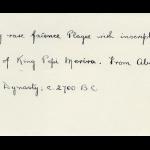 rare faience Plaque with inscript
of King Pepi Merira. From Ab
Dynasty, c. 2700 B.C.